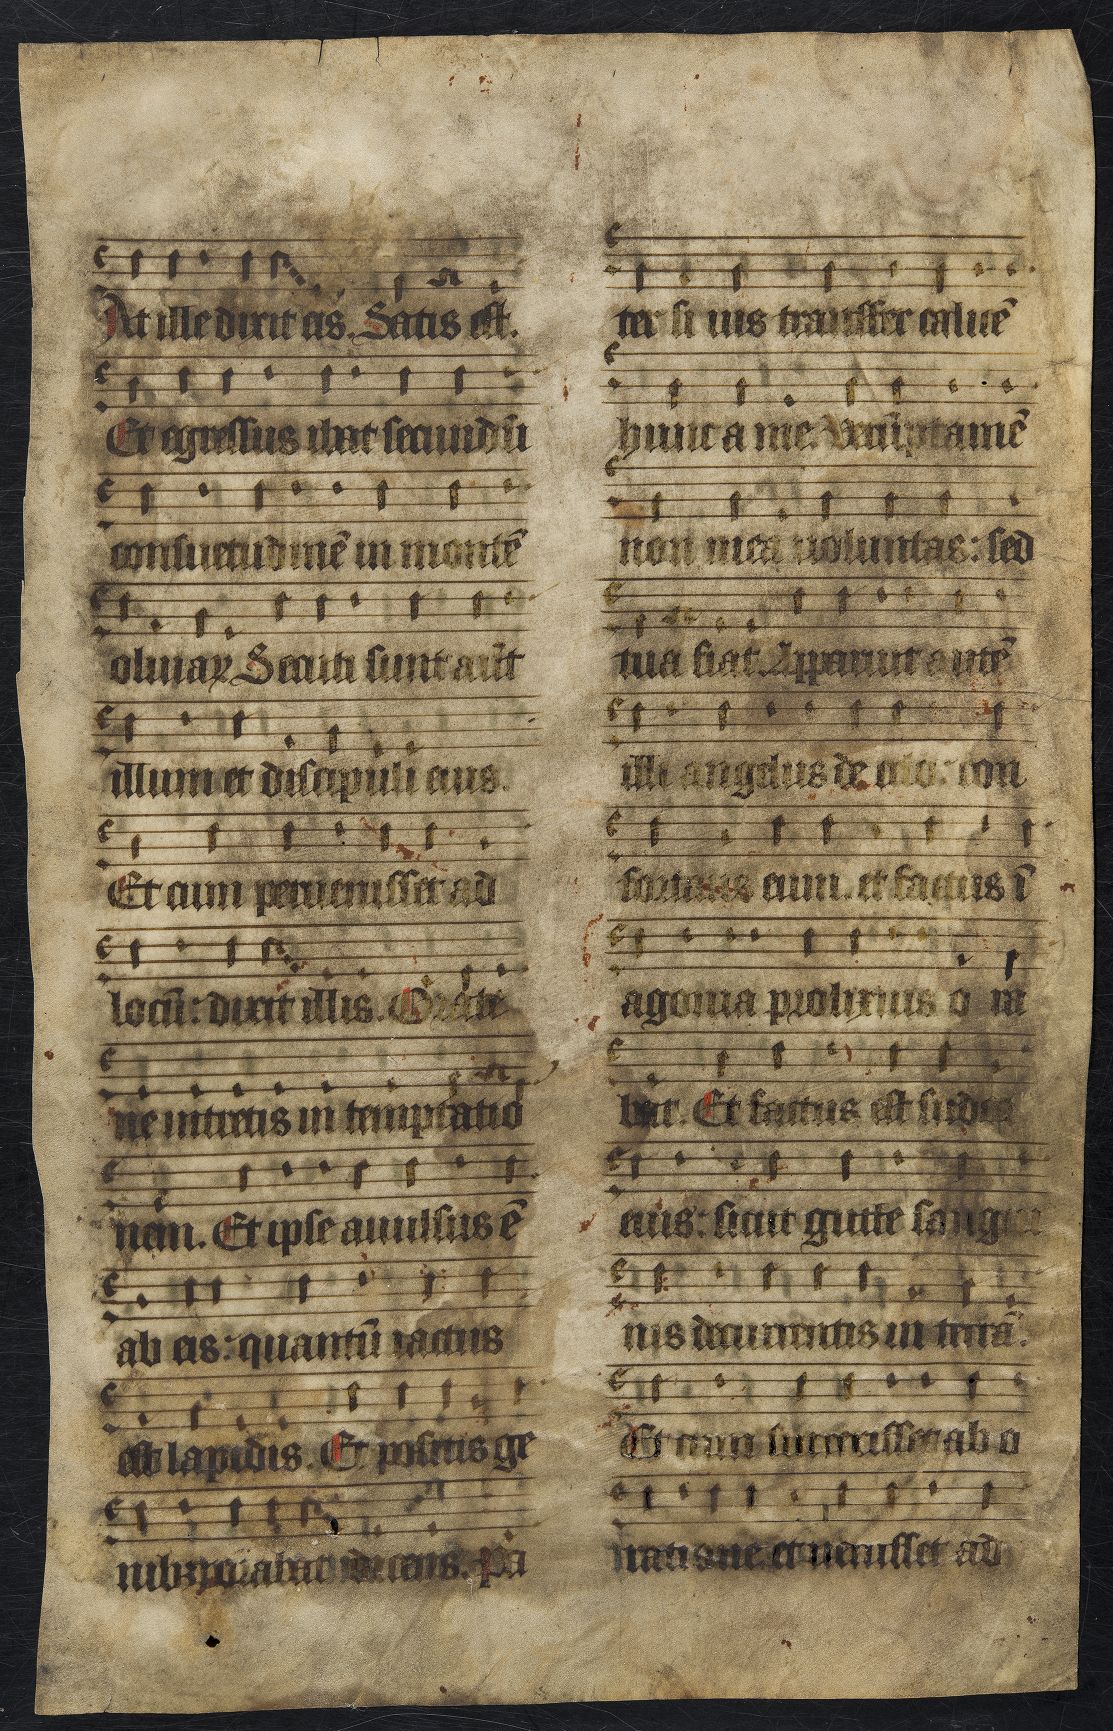 At ille dixit eis. Satis est.
Et egressus ibat secundũ
consuetudinẽ in montẽ
oliuaꝝ. Secuti sunt aũt
illum et discipuli eius.
Et cum peruenisset ad
locũ: dixit illis. Orate
ne intretis in temptatio
nem. Et ipse auulsus ẽ
ab eis: quantũ iactus
est lapidis. Et positis ge
nibꝫ orabat dicens. Pa
ter si uis transfer calicẽ
hunc a me. Verũptamẽ
non mea uoluntas: sed
tua fiat. Apparuit autẽ
illi angelus de celo: con
fortans eum. et factus ĩ
agonia prolixius o ra
bat. Et factus est sudor
eius: sicut gutte sangui
nis decurrentis in terrã.
Et cum surrexisset ab o
ratione et uenisset ad